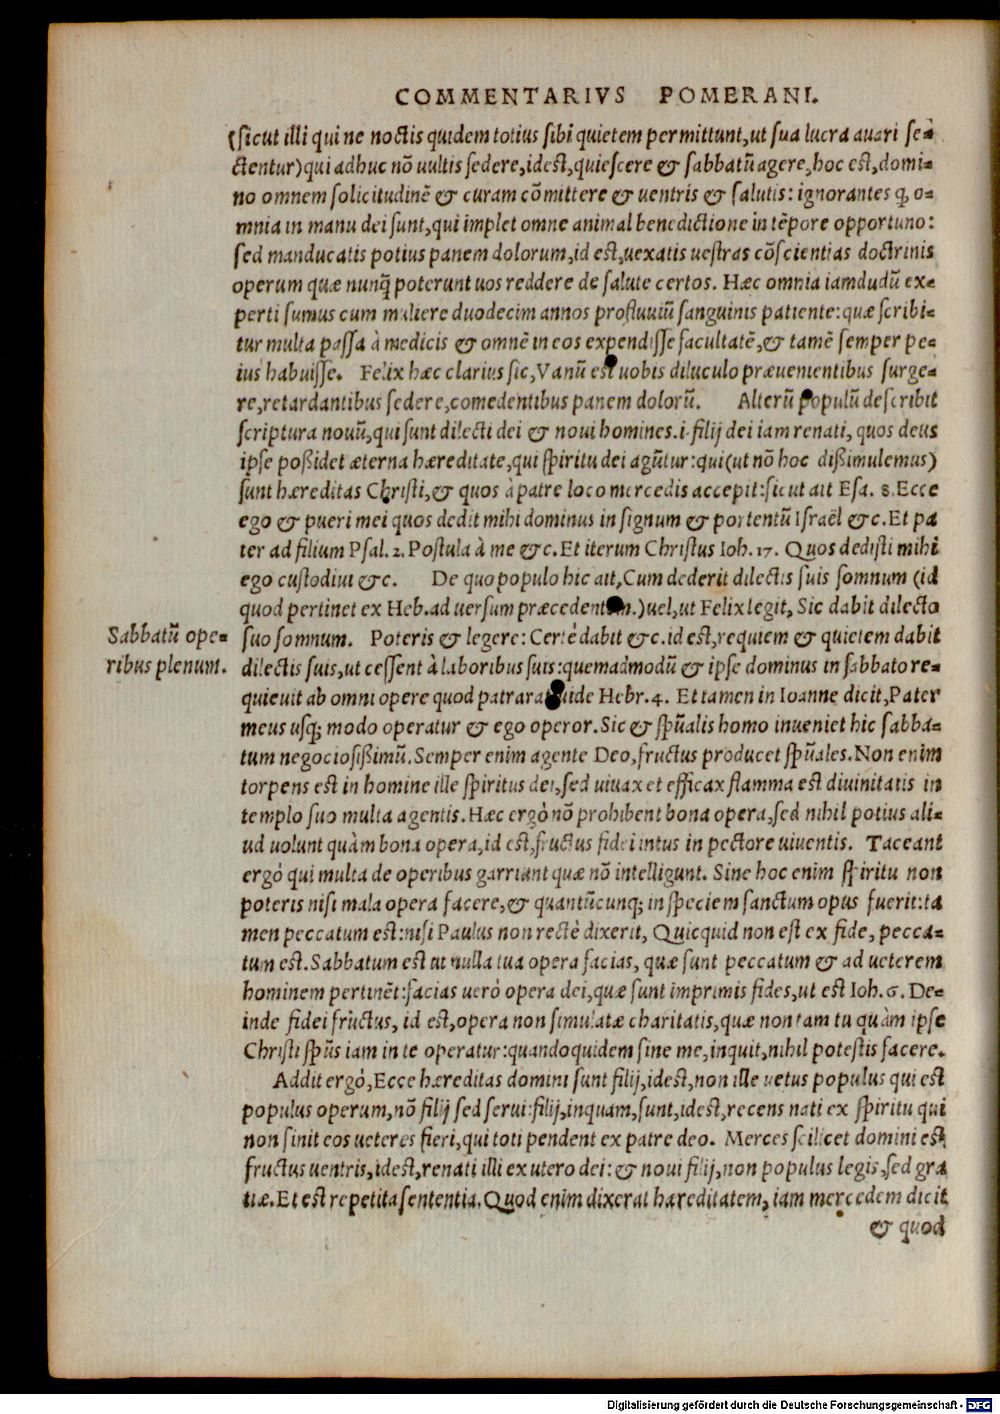 COMMENTARIVS POMERANI.
(sicut illi qui ne noctis quidem totius sibi quietem permittunt, ut sua lucra auari se-
ctentur) qui adhuc nõ uultis sedere, idest, quiescere & sabbatũ agere, hoc est, domi-
no omnem solicitudinẽ & curam cõmittere & uentris & salutis: ignorantes q, o-
mnia in manu dei sunt, qui implet omne animal benedictione in tẽpore opportuno:
sed manducatis potius panem dolorum, id est, uexatis uestras cõscientias doctrinis
operum quæ nunq̃ poterunt uos reddere de salute certos. Hæc omnia iamdudũ ex-
perti sumus cum muliere duodecim annos profluuiũ sanguinis patiente: quæ scribi-
tur multa passa à medicis & omnẽ in eos expendisse facultatẽ, & tamẽ semper pe-
ius habuisse. Felix hæc clarius sic, Vanũ est uobis diluculo præuenientibus surge-
re, retardantibus sedere, comedentibus panem dolorũ. Alterũ populũ describit
scriptura nouũ, qui sunt dilecti dei & noui homines .i. filij dei iam renati, quos deus
ipse poßidet æterna hæreditate, qui spiritu dei agũtur: qui (ut nõ hoc dißimulemus)
sunt hæreditas Christi, & quos à patre loco mercedis accepit: sicut ait Esa. 8. Ecce
ego & pueri mei quos dedit mihi dominus in signum & portentũ Israël &c. Et pa
ter ad filium Psal. 2. Postula à me &c. Et iterum Christus Ioh. 17. Quos dedisti mihi
ego custodiui &c. De quo populo hic ait, Cum dederit dilectis suis somnum (id
quod pertinet ex Heb. ad uersum præcedentem.) uel, ut Felix legit, Sic dabit dilecto
Sabbatũ ope-
ribus plenum.
suo somnum. Poteris & legere: Certè dabit &c. id est, requiem & quietem dabit
dilectis suis, ut cessent à laboribus suis: quemadmodũ & ipse dominus in sabbato re-
quieuit ab omni opere quod patrarat uide Hebr. 4. Et tamen in Ioanne dicit, Pater
meus usq; modo operatur & ego operor. Sic & spũalis homo inueniet hic sabba-
tum negociosißimũ. Semper enim agente Deo, fructus producet spũales. Non enim
torpens est in homine ille spiritus dei, sed uiuax et efficax flamma est diuinitatis in
templo suo multa agentis. Hæc ergò nõ prohibent bona opera, sed nihil potius ali-
ud uolunt quàm bona opera, id est, fructus fidei intus in pectore uiuentis. Taceant
ergó qui multa de operibus garriunt quæ nõ intelligunt. Sine hoc enim spiritu non
poteris nisi mala opera facere, & quantũcunq; in speciem sanctum opus fuerit: ta
men peccatum est: nisi Paulus non rectè dixerit, Quicquid non est ex fide, pecca-
tum est. Sabbatum est ut nulla tua opera facias, quæ sunt peccatum & ad ueterem
hominem pertinẽt: facias ueró opera dei, quæ sunt imprimis fides, ut est Ioh. 6. De-
inde fidei fructus, id est, opera non simulatæ charitatis, quæ non tam tu quàm ipse
Christi spũs iam in te operatur: quandoquidem sine me, inquit, nihil potestis facere.
Addit ergó, Ecce hæreditas domini sunt filij, idest, non ille uetus populus qui est
populus operum, nõ filij sed serui: filij, inquam, sunt, idest, recens nati ex spiritu qui
non sinit eos ueteres fieri, qui toti pendent ex patre deo. Merces scilicet domini est
fructus uentris, idest, renati illi ex utero dei: & noui filij, non populus legis, sed gra
tiæ. Et est repetita sententia. Quod enim dixerat hæreditatem, iam mercedem dicit
& quod
Digitalisierung gefördert durch die Deutsche Forschungsgemeinschaft - DFG